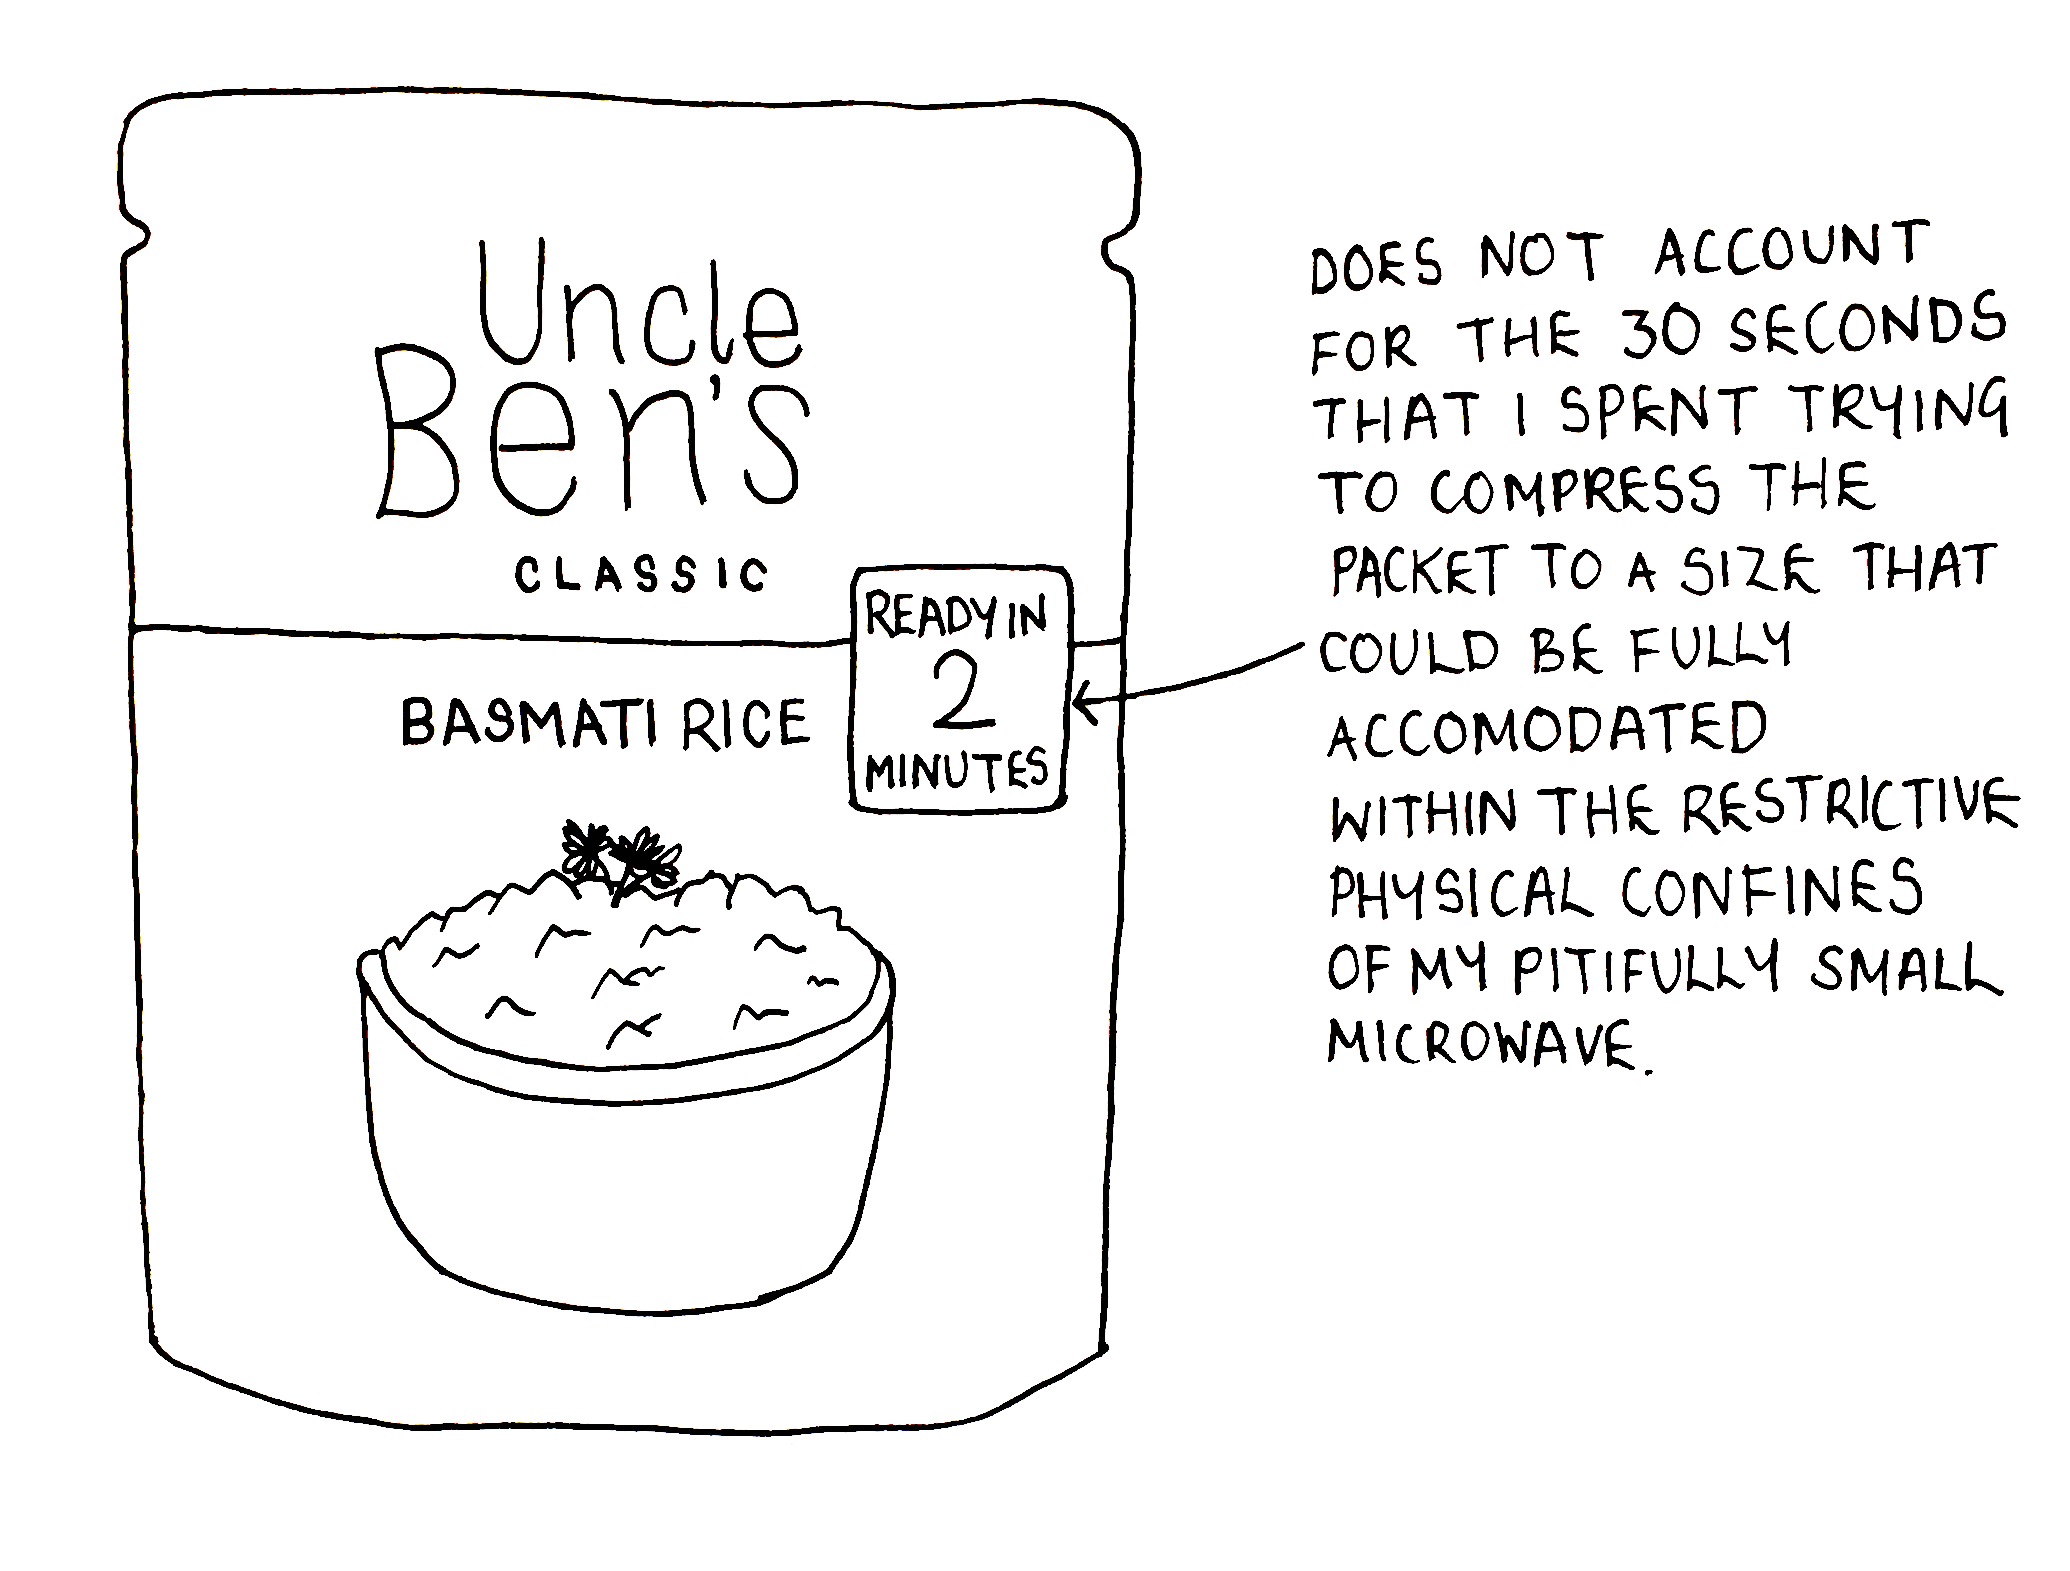 Uncle
Ben's
CLASSIC
BASMATI RICE
READY IN
2
MINUTES
DOES NOT ACCOUNT
FOR THE 30 SECONDS
THAT I SPENT TRYING
TO COMPRESS THE
PACKET TO A SIZE THAT
COULD BE FULLY
ACCOMODATED
WITHIN THE RESTRICTIVE
PHYSICAL CONFINES
OF MY PITIFULLY SMALL
MICROWAVE.